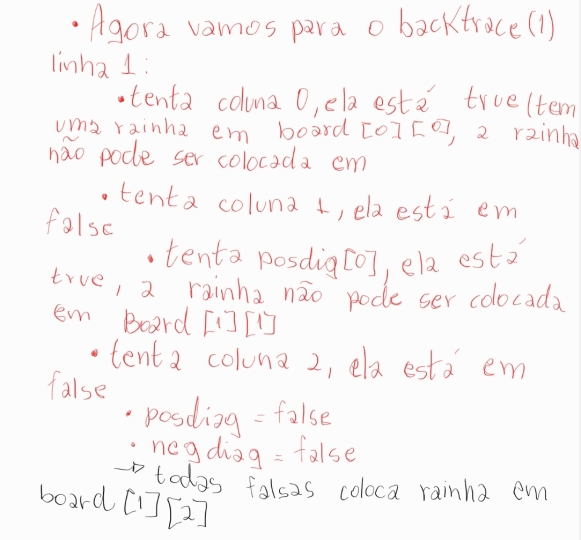 • Agora vamos para o backtrace(1)
linha 1:
• tenta coluna 0, ela está true (tem
uma rainha em board [0][0], a rainha
não pode ser colocada em
• tenta coluna 1, ela está em
false
• tenta posdig[0], ela está
true, a rainha não pode ser colocada
em Board [1][1]
• tenta coluna 2, ela está em
false
• posdiag = false
• neg diag = false
→ todas falsas coloca rainha em
board [1][2]